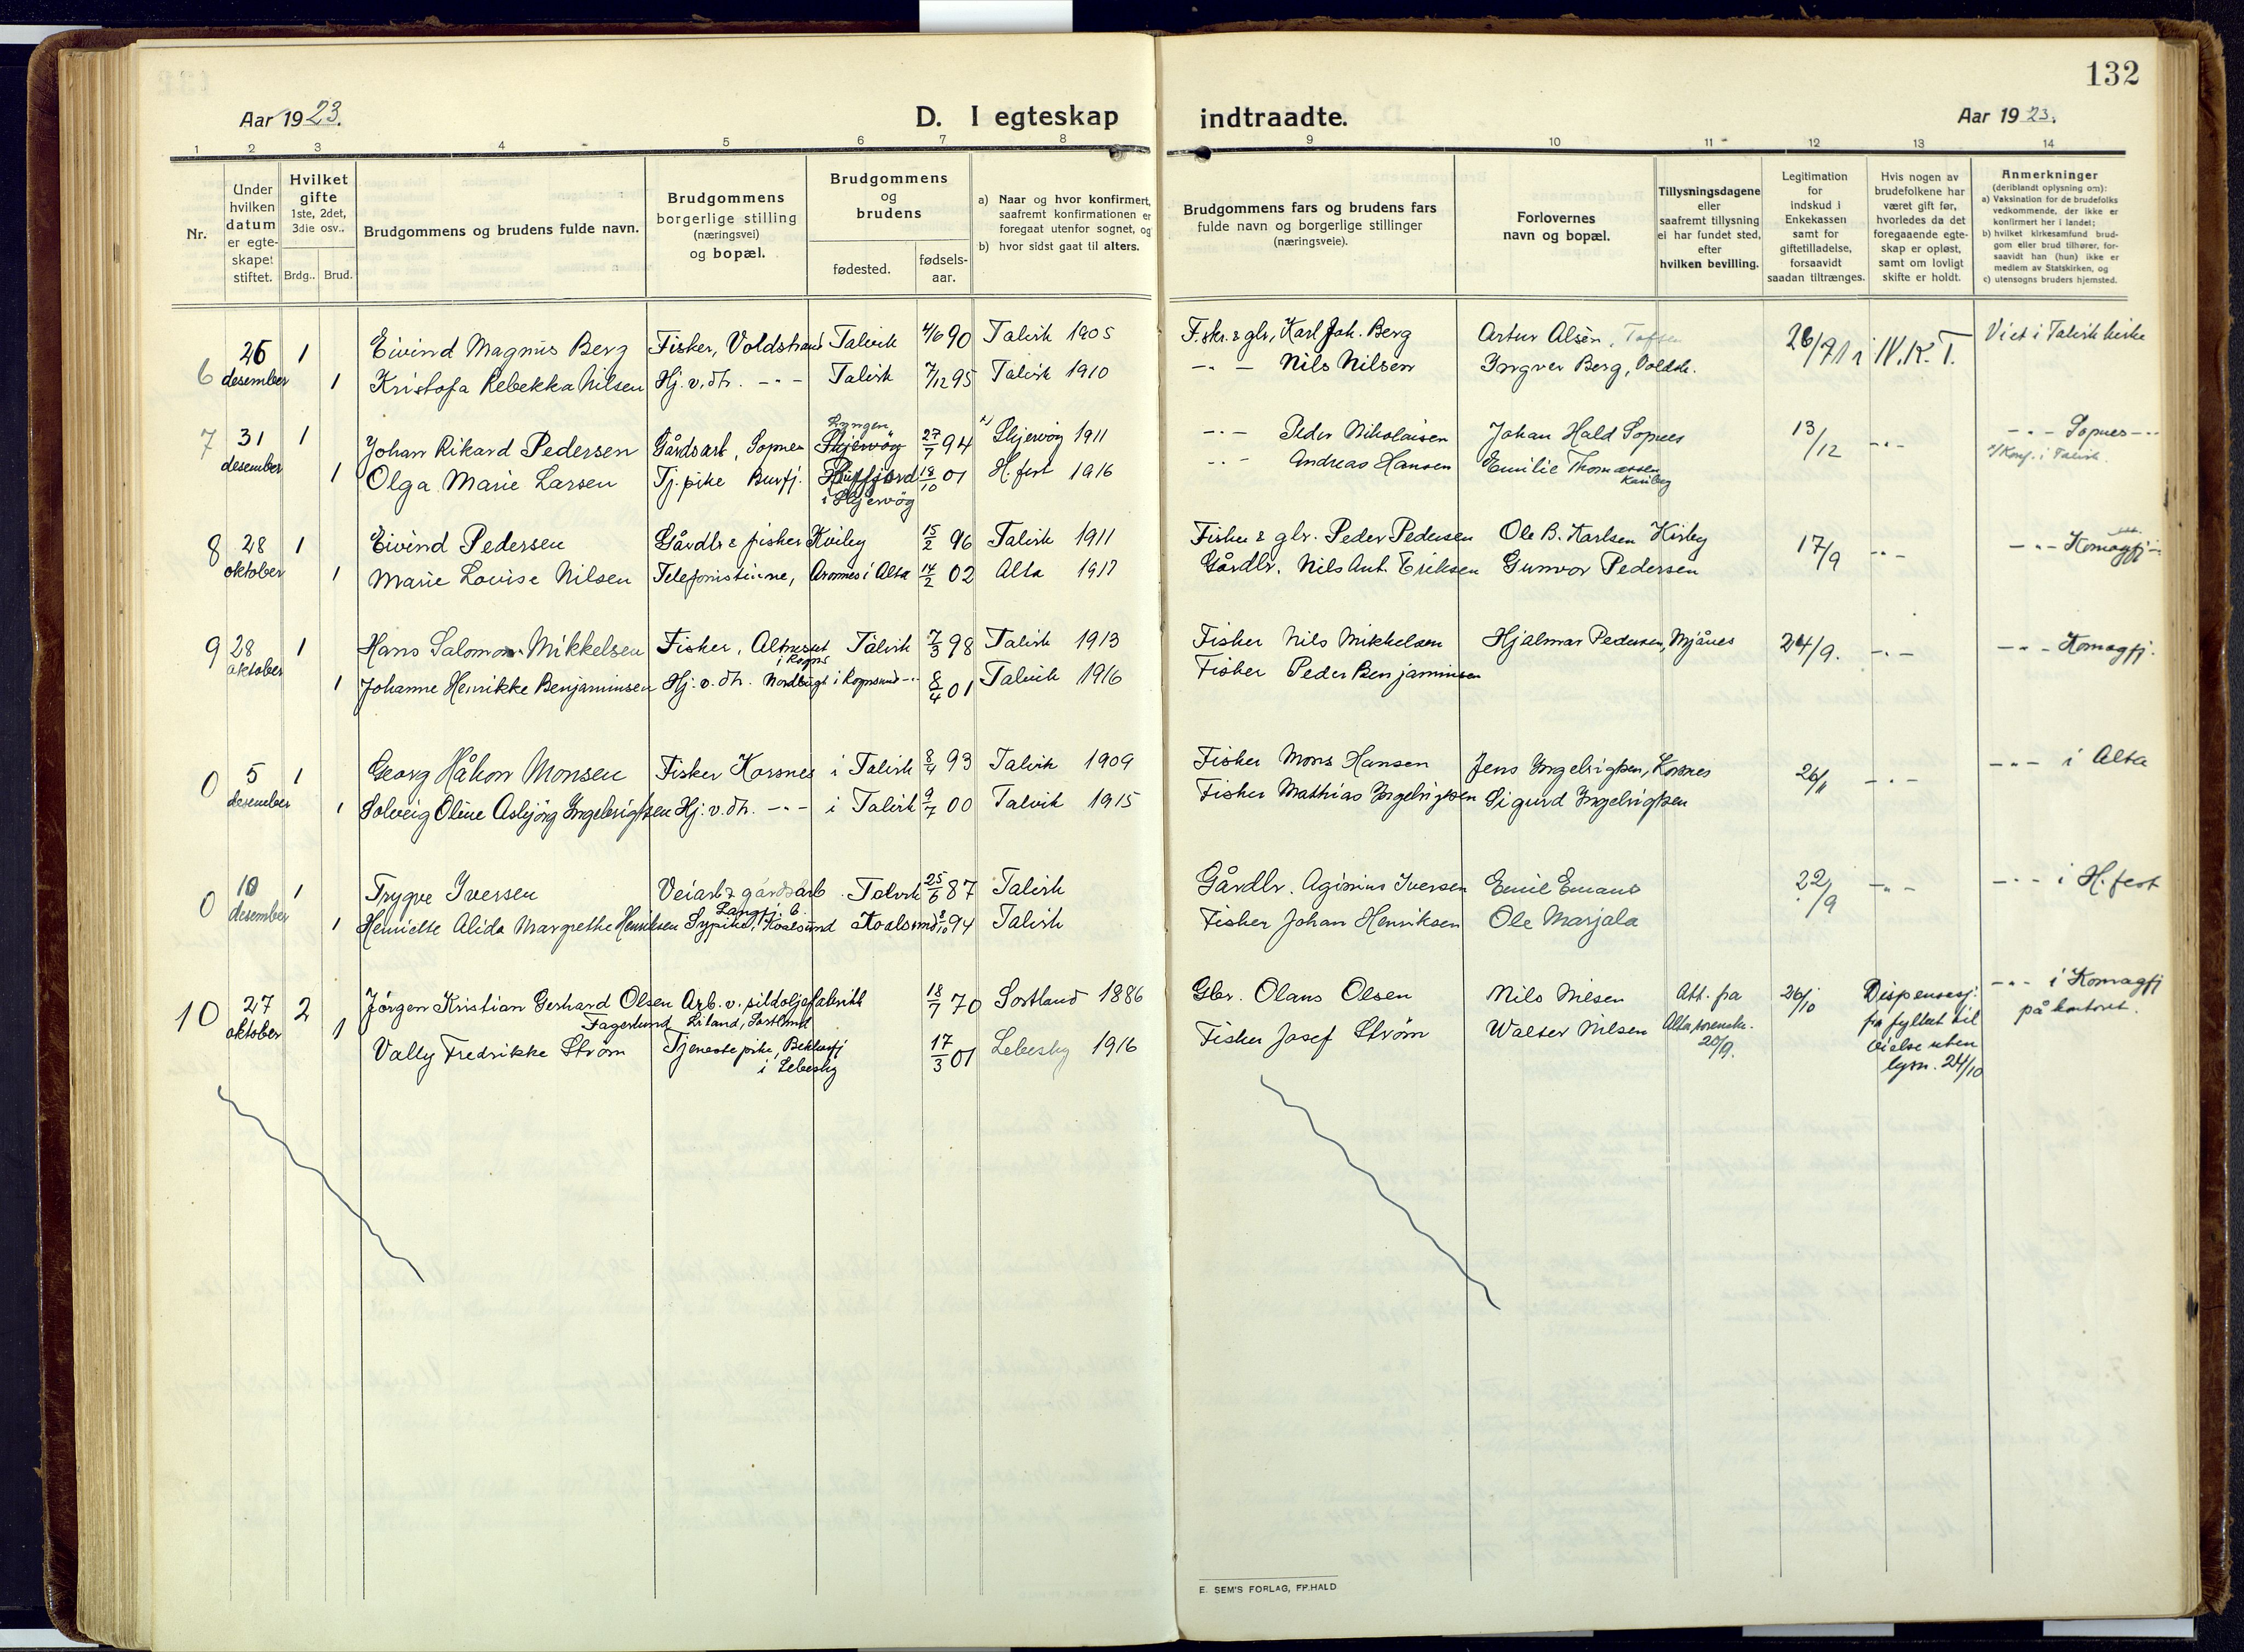 132
Aar 1923.
D. I egteskap indtraadte.
Aar 1923.
1 2 3 4 5 6 7 8 9 10 11 12 13 14
Nr.
Under hvilken datum er egteskapet stiftet.
Hvilket gifte 1ste, 2det, 3die osv..
Brdg.. Brud.
Brudgommens og brudens fulde navn.
Brudgommens borgerlige stilling (næringsvei) og bopæl.
Brudgommens og brudens
fødested. fødselsaar.
a) Naar og hvor konfirmert, saafremt konfirmationen er foregaat utenfor sognet, og
b) hvor sidst gaat til alters.
Brudgommens fars og brudens fars fulde navn og borgerlige stillinger (næringsveie).
Forlovernes navn og bopæl.
Tillysningsdagene eller saafremt tillysning ei har fundet sted, efter hvilken bevilling.
Legitimation for indskud i Enkekassen samt for giftetilladelse, forsaavidt saadan tiltrænges.
Hvis nogen av brudefolkene har været gift før, hvorledes da det foregaaende egteskap er opløst, samt om lovligt skifte er holdt.
Anmerkninger (deriblandt oplysning om):
a) Vaksination for de brudefolks vedkommende, der ikke er konfirmert her i landet;
b) hvilket kirkesamfund brudgom eller brud tilhører, forsaavidt han (hun) ikke er medlem av Statskirken, og
c) utensogns bruders hjemsted.
6 26 desember 1 Eivind Magnus Berg Fisker, Voldstrand Talvik 4/6 90 Talvik 1905 F.skr. & glr, Karl Joh. Berg Artur Alsén, Toften 28/71 i N.K.T. Viet i Talvik kirke
1 Kristofa Rebekka Nilsen Hj. v. dh. -"- Talvik 7/12 95 Talvik 1910 -"- Nils Nilsen Ingver Berg, Voldstr.
7 31 desember 1 Johan Rikard Pedersen Gårdsarb, Sopnes Lyngen Skjervöy 27/7 94 x) Skjervöy 1911 -"- Peder Nikolaisen Johan Hald Sopnes 13/12 -"- -"- Sopnes -"-
1 Olga Marie Larsen Tj. pike Burfj. i Skjervöy 18/10 01 H. fest 1916 -"- Andreas Hansen Emilie Thomassen x) Konf. i Talvik.
8 28 oktober 1 Eivind Pedersen Gårdbr & fisker Kviby 15/2 96 Talvik 1911 Fisker & glr. Peder Pedersen Ole B. Karlsen Kviby 17/9 -"- -"- Komagfj -"-
1 Marie Lovise Nilsen Telefonistinne, Aronnes i Alta 14/2 02 Alta 1917 Gårdbr. Nils Ant. Eriksen Gunvor Pedersen
9 28 oktober 1 Hans Salomon Mikkelsen Fisker, Altneset i Rogns Talvik 7/3 98 Talvik 1913 Fisker Nils Mikkelsen Hjalmar Pedersen, Mjånes 24/9. -"- -"- Komagfj.
1 Johanne Henrikke Benjaminsen Hj. v. dh. Nordbugt i Rognsund -"- 8/4 01 Talvik 1916 Fisker Peder Benjaminsen
0 5 desember 1 Georg Håkon Monsen Fisker Korsnes i Talvik 8/4 93 Talvik 1909 Fisker Mons Hansen Jens Ingebrigtsen, Korsnes 26/11 -"- -"- i Alta
1 Solveig Oline Asbjörg Ingebrigtsen Hj. v. dh. -"- i Talvik 9/7 00 Talvik 1915 Fisker Mathias Ingebrigtsen Sigurd Ingebrigtsen
0 10 desember 1 Trygve Iversen Veiarb & gårdsarb Langfj. b. Talvik 25/6 87 Talvik Gårdbr. Aginius Iversen Emil Emaus 22/9 -"- -"- i H. fest
1 Henriette Alida Margrethe Henriksen Sypike, Kvalsund Kvalsund 94 Talvik Fisker Johan Henriksen Ole Marjala
10 27 oktober 2 Jörgen Kristian Gerhard Olsen Arb. v. sildoljefabrikk Fagerlund, Liland, Sortland 18/7 70 Sortland 1886 Gbr. Olaus Olsen Nils Nilsen Att. fra Alta sorensk. 20/9. 26/10 Dispensasj. fra fyllest til vielse uten lysn. 24/10 -"- i Komagfj på kontoret.
1 Vally Fredrikke Ström Tjenestepike, Bekkarfj i Lebesby 17/3 01 Lebesby 1916 Fisker Josef Ström Walter Nilsen
E. SEM'S FORLAG, FR.HALD